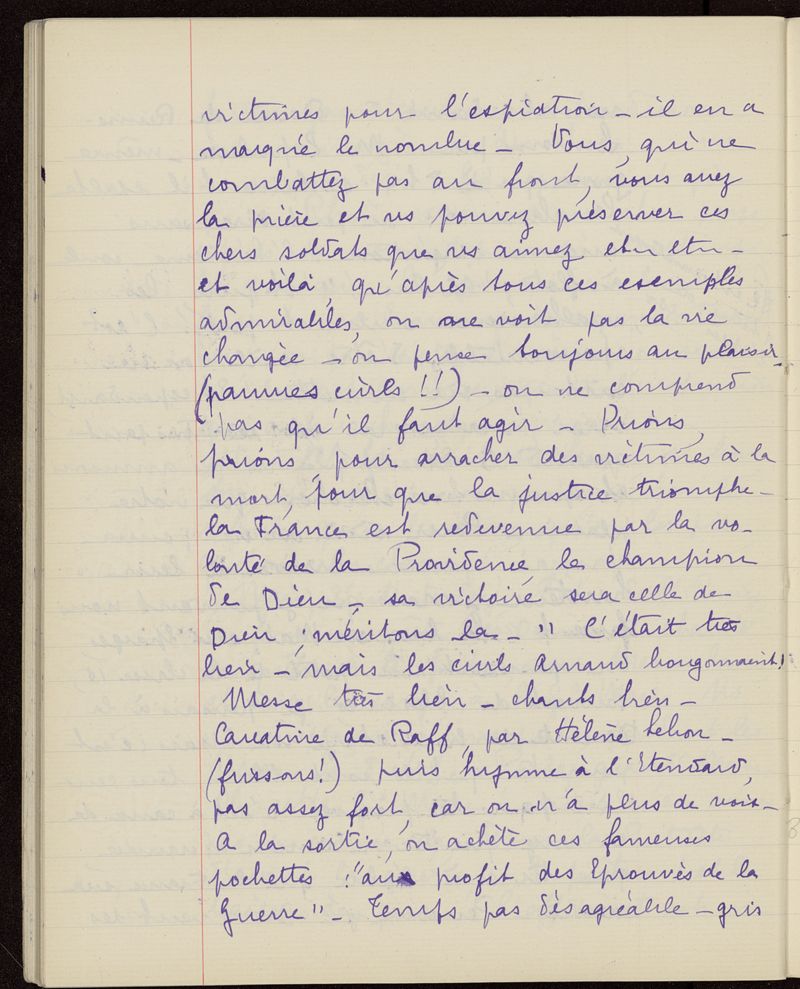 victimes pour l'expiation - il en a
marqué le nombre - Vous, qui ne
combattez pas au front, vous avez
la prière et vs pouvez préserver ces
chers soldats que vs aimez etc etc -
et voilà, qu'après tous ces exemples
admirables, on ne voit pas la vie
changée - on pense toujours au plaisir
(pauvres civils !!) - on ne comprend
pas qu'il faut agir - Prions,
prions, pour arracher des victimes à la
mort, pour que la justice triomphe -
la France est redevenue par la vo-
lonté de la Providence, le champion
de Dieu - sa victoire sera celle de
Dieu ; méritons la - " C'était très
bien - mais les civils Arnaud bougonnaient !
Messe très bien - chants bien -
Cavatine de Raff, par Hélène Lebon -
(frissons !) puis hymne à l'Etendard,
pas assez fort, car on n'a plus de voix -
A la sortie, on achète ces fameuses
pochettes : "aux profit des Eprouvés de la
Guerre" - Temps pas désagréable - gris